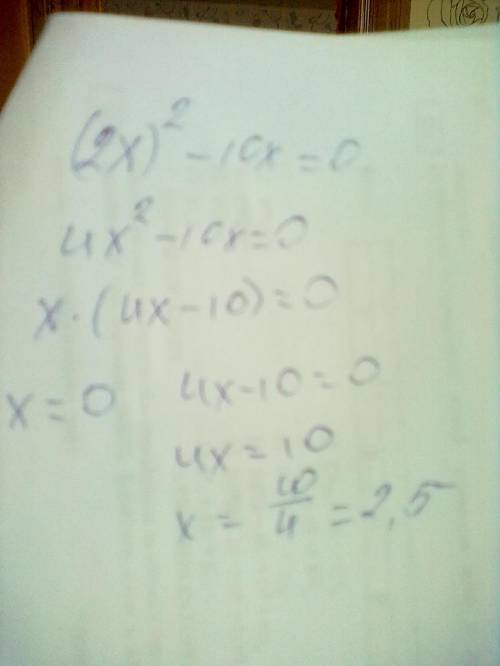 (2x)² - 10x = 0
4x² - 10x = 0
x · (4x - 10) = 0
x = 0 4x - 10 = 0
4x = 10
x = 10/4 = 2,5